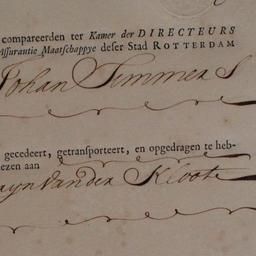 compareerden ter Kamer der DIRECTEURS
Assurantie Maatschappye deser Stad ROTTERDAM
Johan Simmers
gecedeert, getransporteert, en opgedragen te heb-
ezen aan
van der Kloot